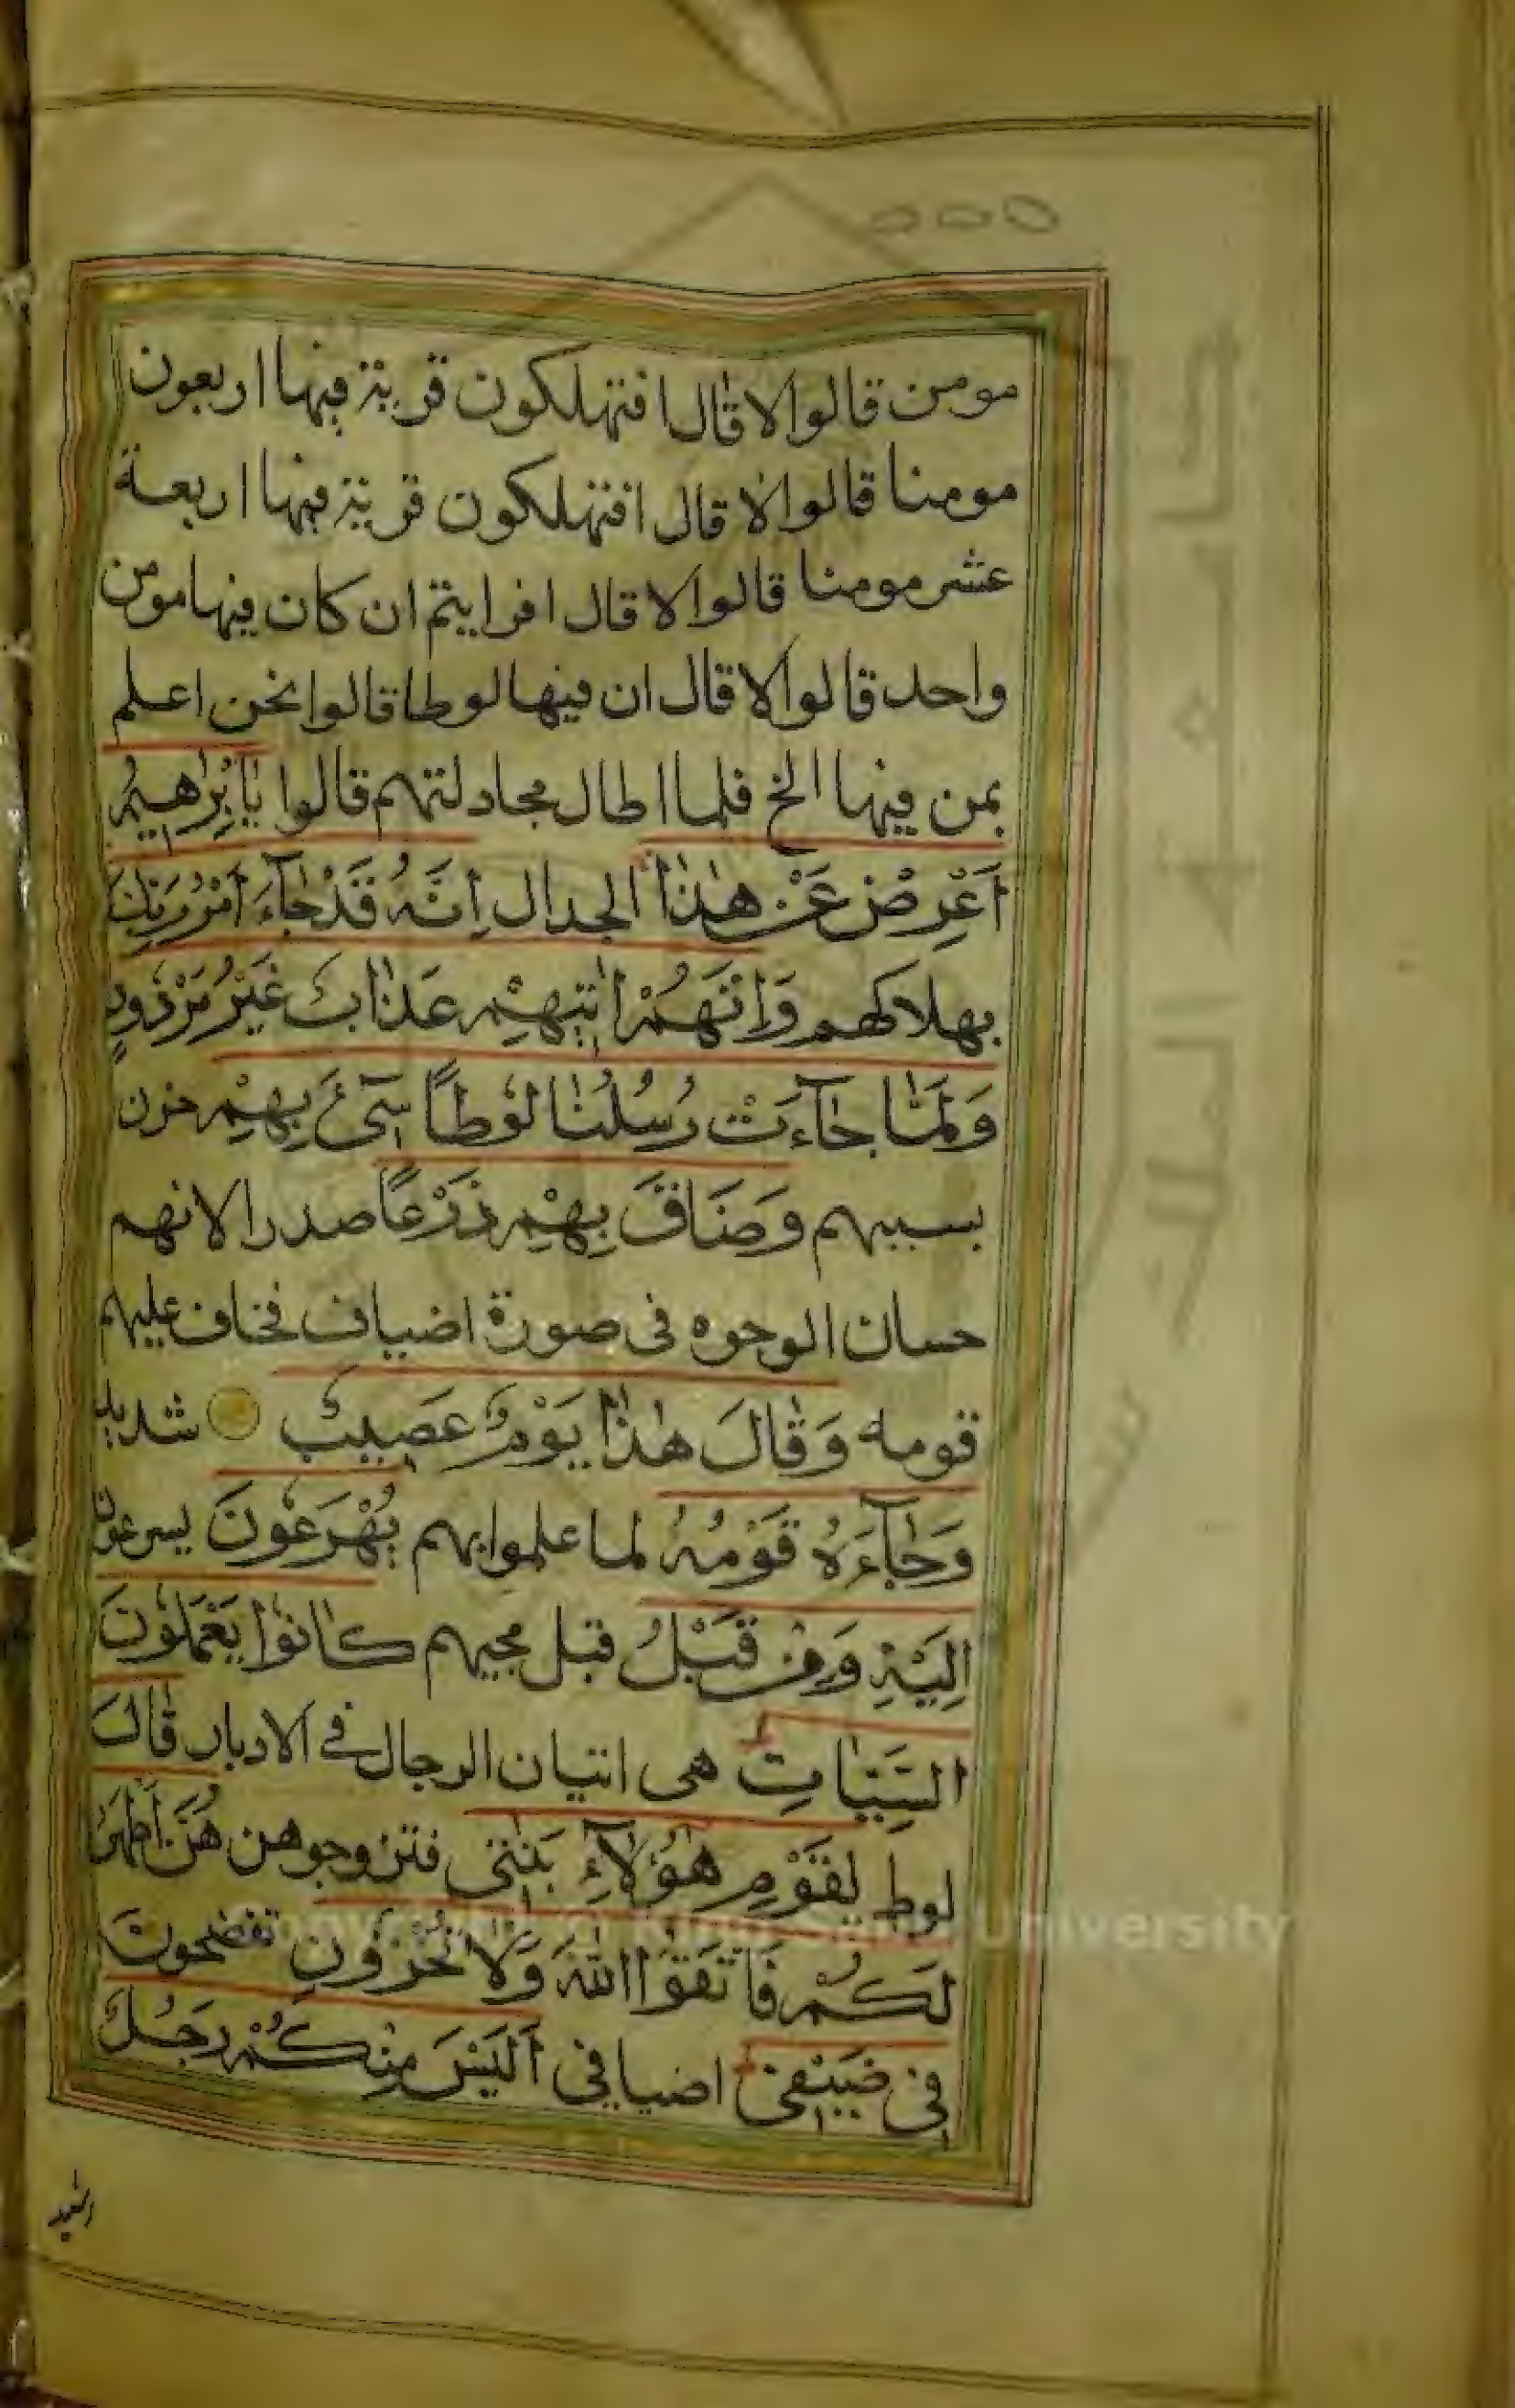 مومن قالوا لا قال افتهلكون قرية فيها اربعون
مومنا قالوا لا قال افتهلكون قرية فيها اربعة
عشر مومنا قالوا لا قال افرايتم ان كان فيها مومن
واحد قالوا لا قال ان فيها لوطا قالوا نحن اعلم
بمن فيها الخ فلما اطال مجادلتهم قالوا يٰاِبْرٰهِيْمُ
اَعْرِضْ عَنْ هٰذَا الجدال اِنَّهُ قَدْ جَآءَ اَمْرُ رَبِّكَ
بهلاكهم وَاِنَّهُمْ اٰتِيْهِمْ عَذَابٌ غَيْرُ مَرْدُوْدٍ
وَلَمَّا جَآءَتْ رُسُلُنَا لُوْطًا سِيْٓءَ بِهِمْ حزن
بسببهم وَضَاقَ بِهِمْ ذَرْعًا صدرا لانهم
حسان الوجوه فى صورة اضياف فخاف عليهم
قومه وَقَالَ هٰذَا يَوْمٌ عَصِيْبٌ شديد
وَجَآءَهُ قَوْمُهُ لما علموا بهم يُهْرَعُوْنَ يسرعون
اِلَيْهِ وَمِنْ قَبْلُ قبل مجيهم كَانُوْا يَعْمَلُوْنَ
السَّيِّاٰتِ هى اتيان الرجال فى الادبار قَالَ
لوط يٰقَوْمِ هٰؤُلَآءِ بَنٰتِى فتزوجوهن هُنَّ اَطْهَرُ
لَكُمْ فَاتَّقُوا اللّٰهَ وَلَا تُخْزُوْنِ تفضحون
فِى ضَيْفِى اضيافى اَلَيْسَ مِنْكُمْ رَجُلٌ
رشيد
University